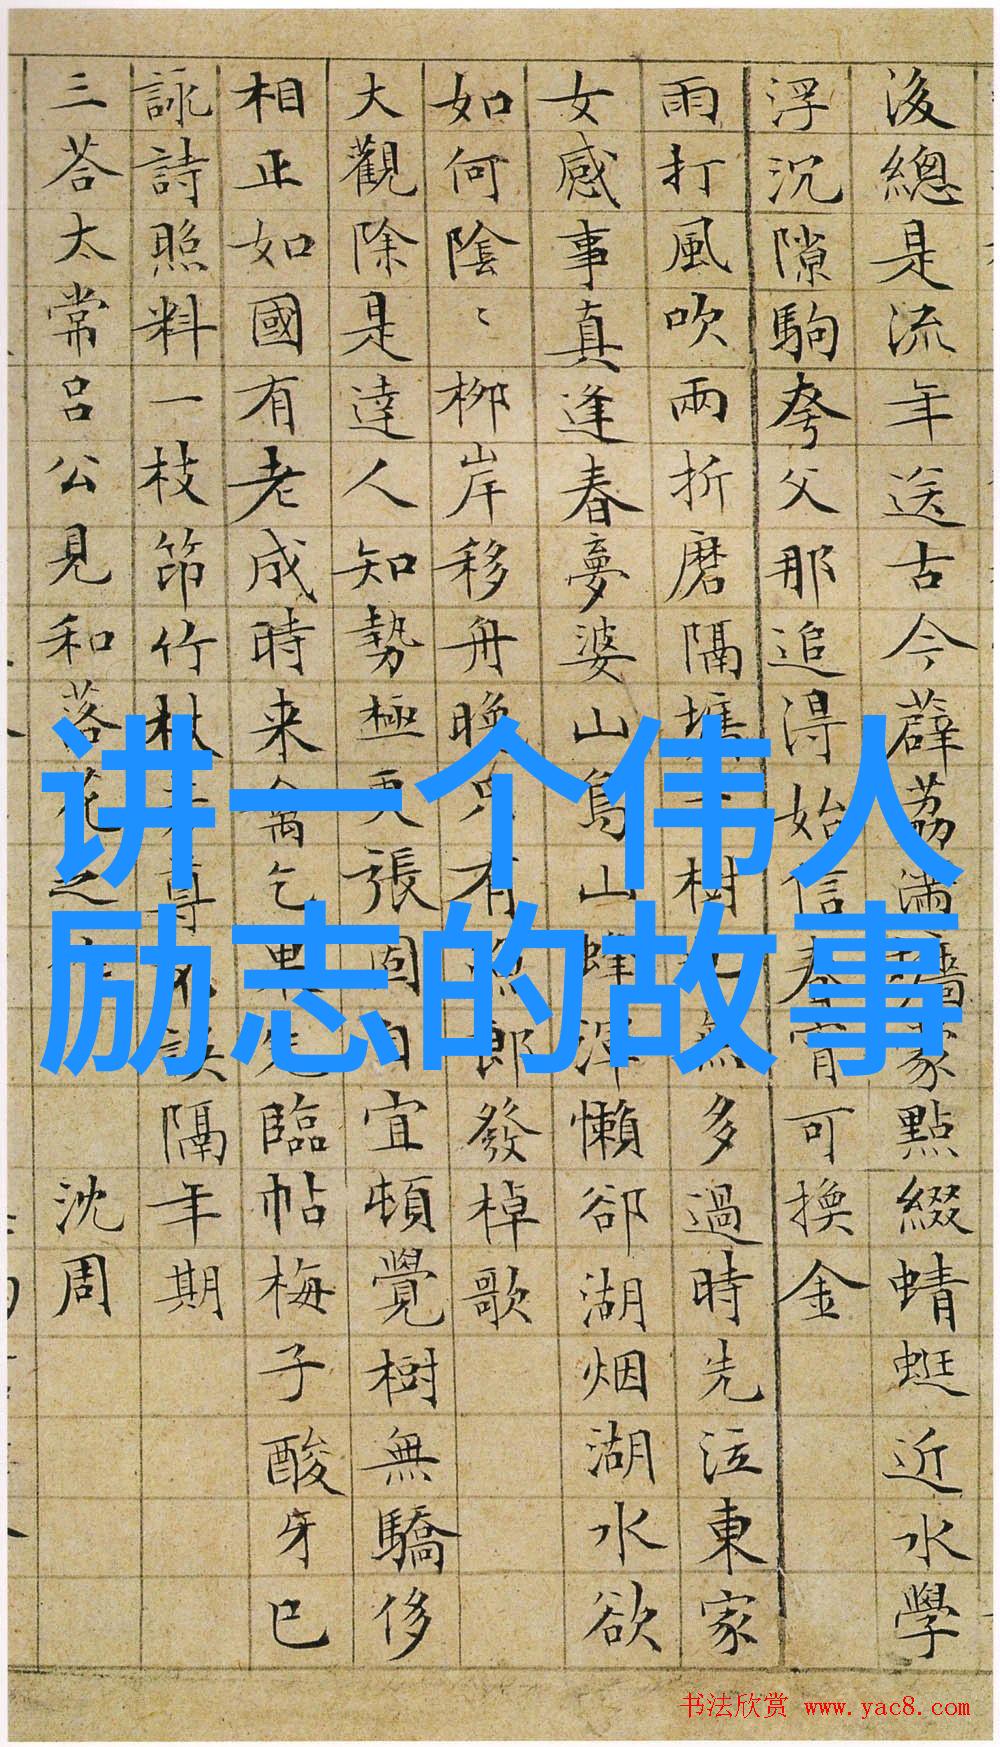 後總是流年送古今薜荔滿墻家點綴蜻蜓近水學
浮沉隙駒夸父那追得始信春宵可換金
雨打風吹兩折磨隔墻樹無多過時先泣東家
女感事真逢春夢婆山鳥山蜂渾懶郤湖烟湖水欲
如何陰〻柳岸移舟晚只有漁郎發棹歌
大觀除是達人知勢極更張固自宜頓覺樹無驕侈
相正如國有老成時来禽乞果先臨帖梅子酸牙已
詠詩照料一枝笻竹杖尊誤隔年期
三荅太常呂公見和落花之作 沈周
讲一个伟人
励志的故事
书法欣赏 www.yac8.com